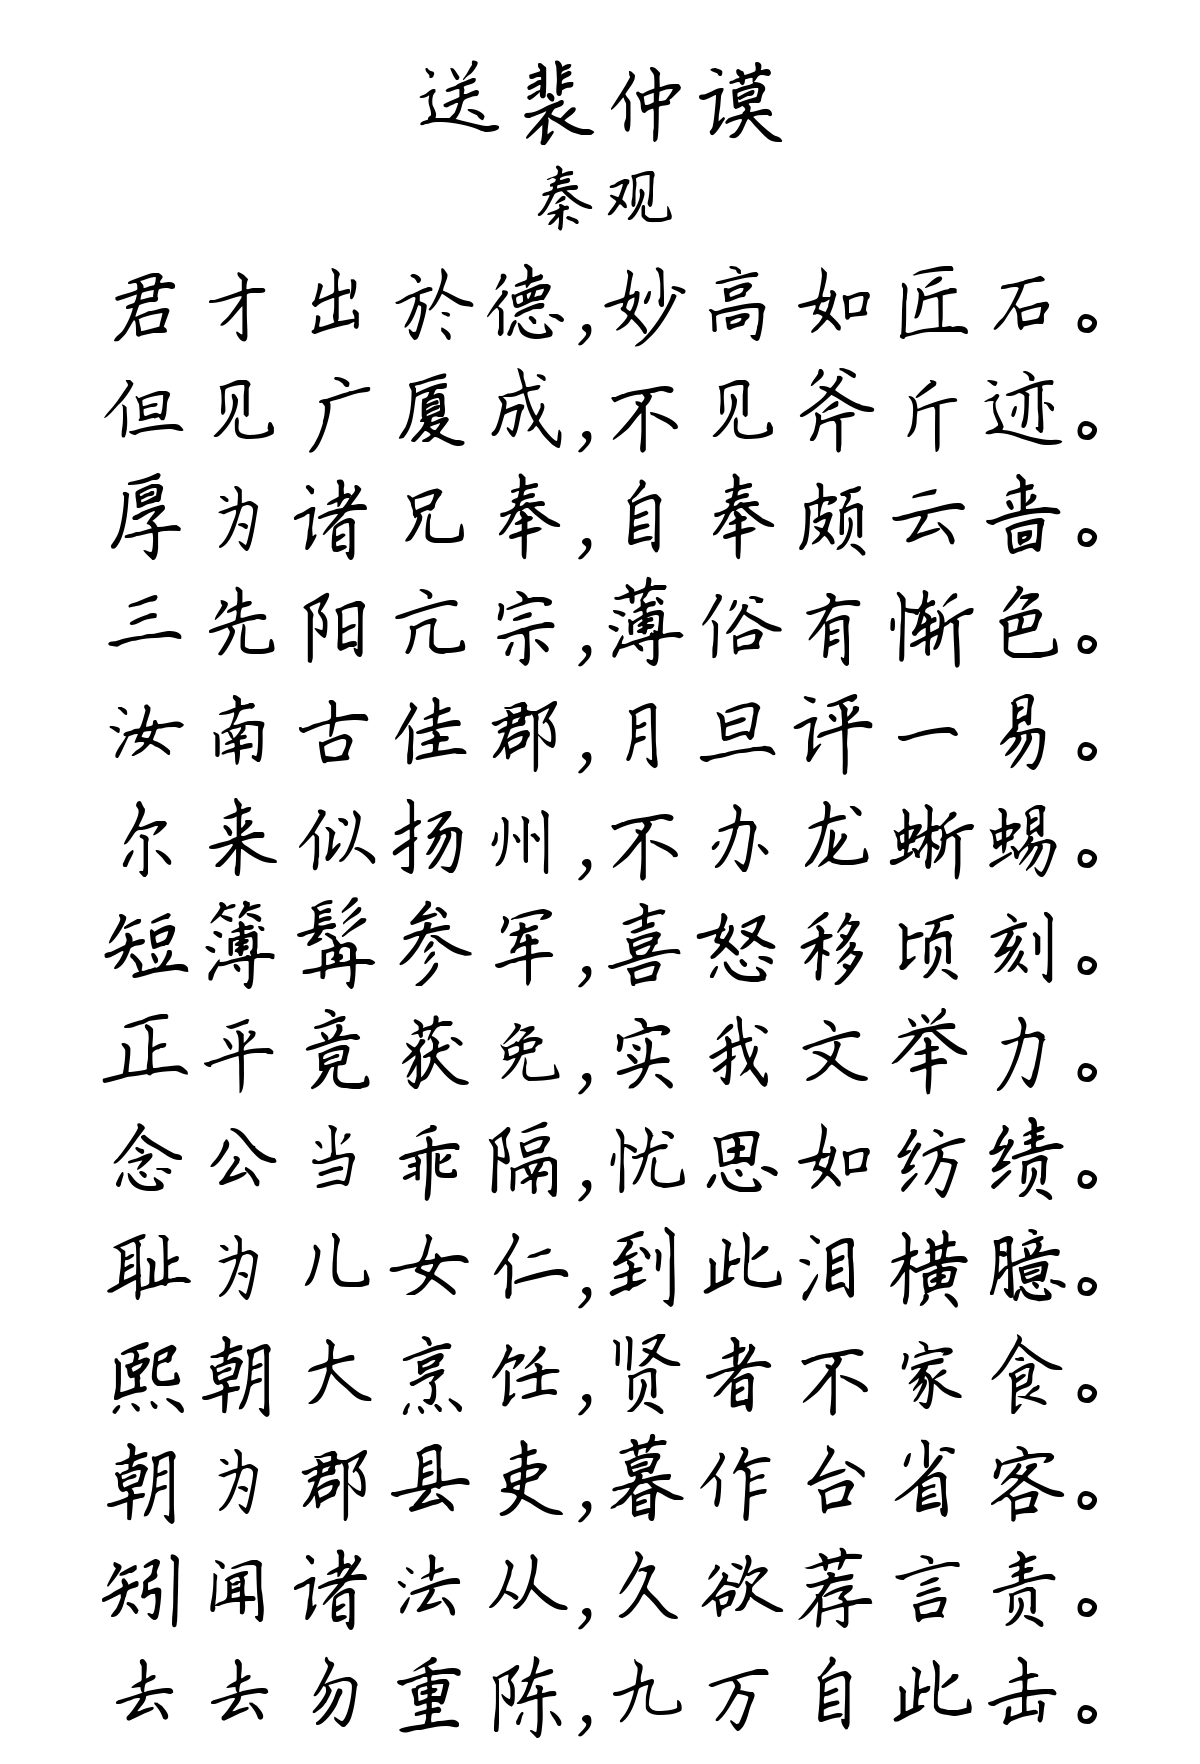 送裴仲谟
秦观
君才出於德,妙高如匠石。
但见广厦成,不见斧斤迹。
厚为诸兄奉,自奉颇云啬。
三先阳亢宗,薄俗有惭色。
汝南古佳郡,月旦评一易。
尔来似扬州,不办龙蜥蜴。
短簿髯参军,喜怒移顷刻。
正平竟获免,实我文举力。
念公当乖隔,忧思如纺绩。
耻为儿女仁,到此泪横臆。
熙朝大烹饪,贤者不家食。
朝为郡县吏,暮作台省客。
矧闻诸法从,久欲荐言责。
去去勿重陈,九万自此击。